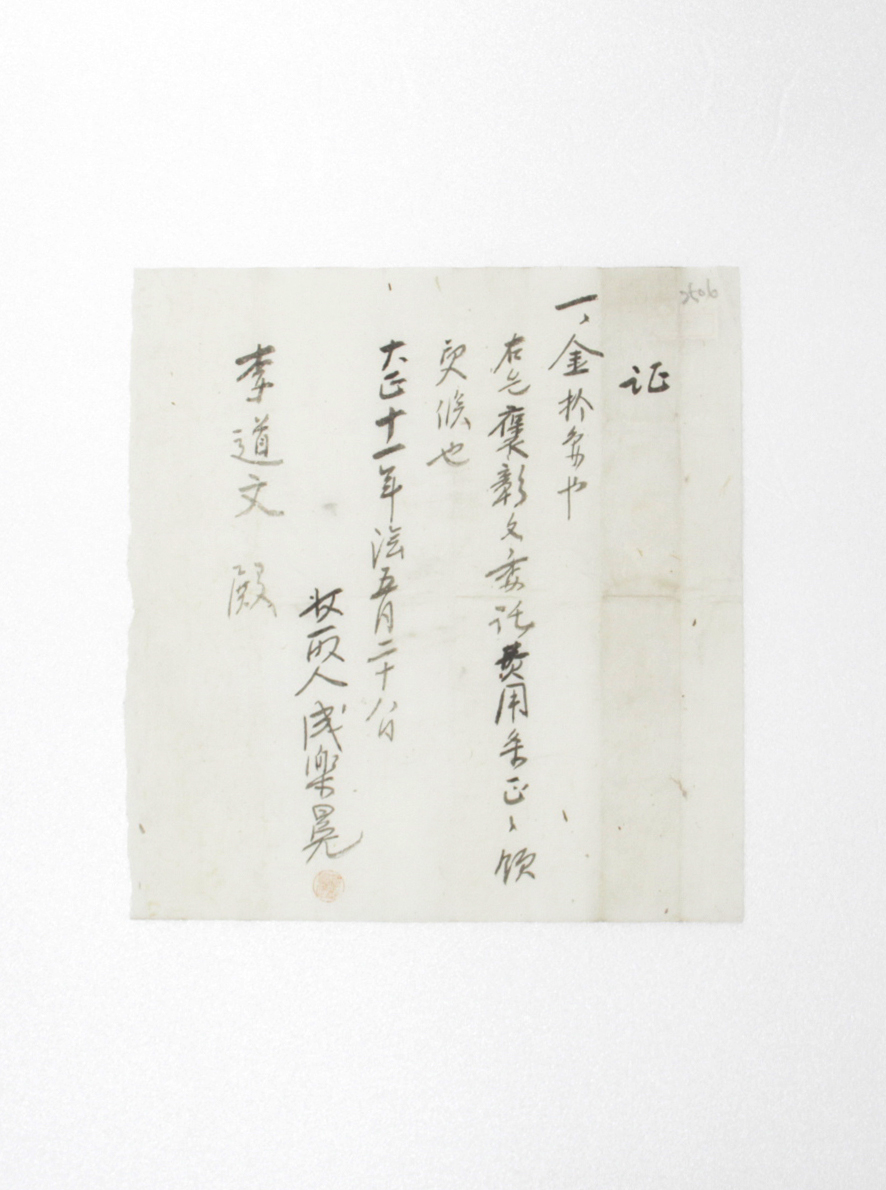 证
一、金拾圓也
右片褒彰文委託費用条正ニ領
受候也
大正十一年陰五月二十八日
收取人成樂晃
李道文 殿